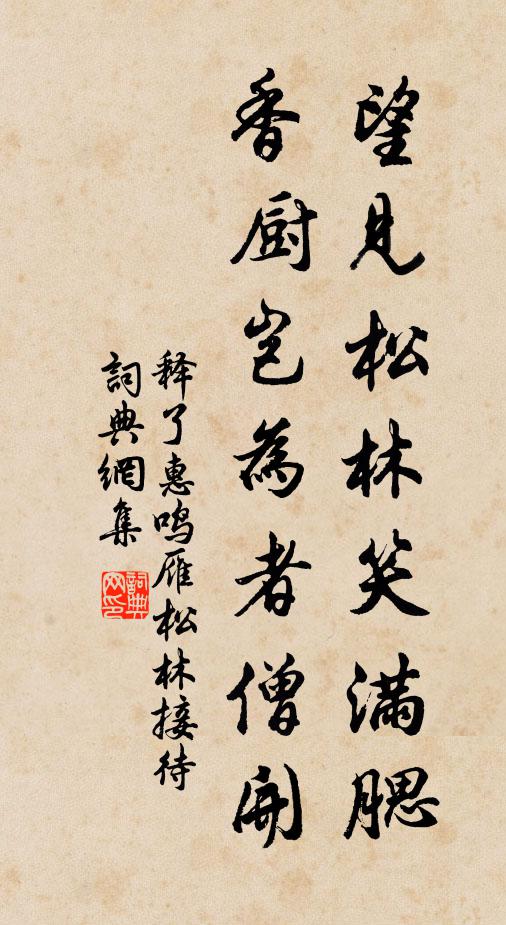 望見松林笑满腮
香厨岂為者僧開
释了惠鸣雁松林接待
詞典網集
詞典網印